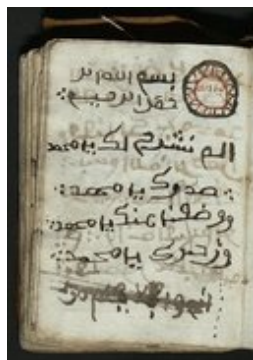 بسم الله الر
حمن الرحيم
الم نشرح لك يا محمد
صدرك يا محمد
ووضعنا عنك يا محمد
وزرك يا محمد